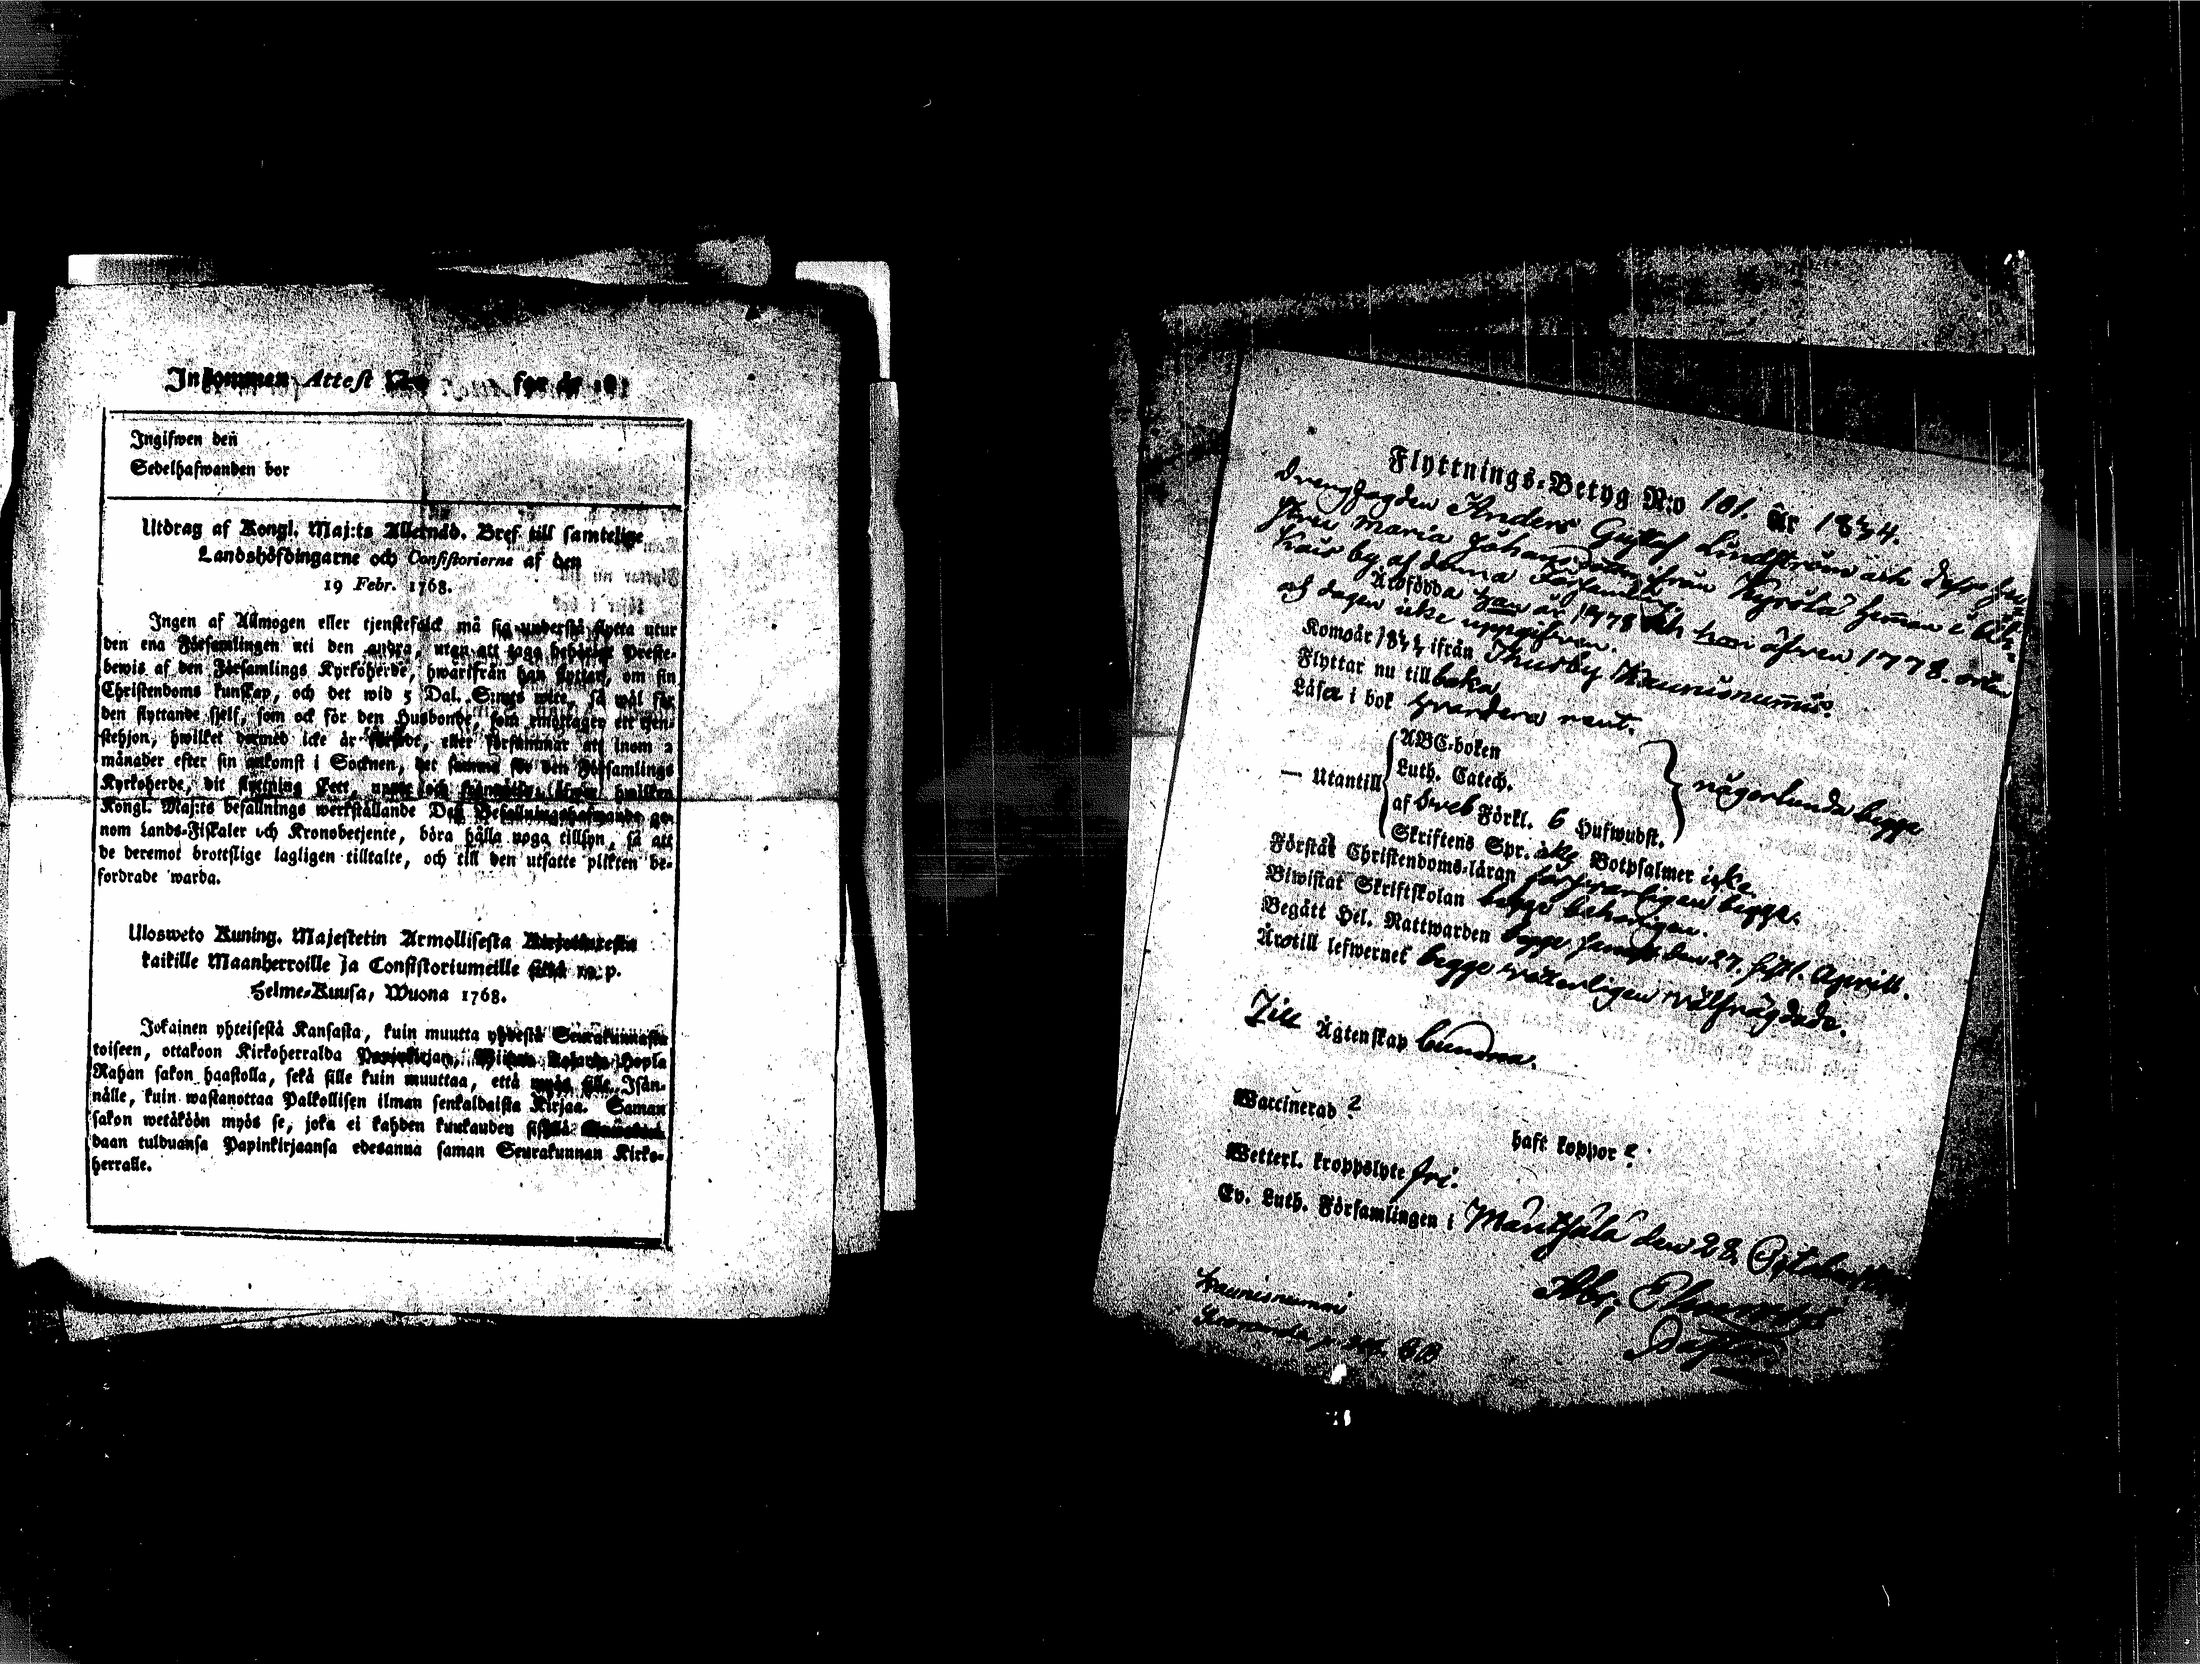 Inkommen Attest N:o för år 18
Ingifwen den
Sedelhafwanden bor
Utdrag af Kongl. Maj:ts Allernåd. Bref till samtelige
Landshöfdingarne och Consistorierne af den
19 Febr. 1768.
Ingen af Allmogen eller tjenstefolck må sig understå flytta utur
den ena Församlingen uti den andra, utan att taga behörigt Preste-
bewis af den Församlings Kyrkoherde, hwarifrån han flyttar, om sin
Christendoms kunskap, och det wid 5 Dal. S:mts wite, så wål för
den flyttande sjelf, som ock för den Husbonde, som emottager ett tjen-
stehjon, hwilket dermed icke år försedt, eller försummar att inom 2
månader efter sin ankomst i Socknen, det samma för den Församlings
Kyrkoherde, dit flyttning skett, uppte och hwilken
Kongl. Maj:ts befallnings werkställande Deß Befallningshafwande ge-
nom Lands-Fiskaler och Kronobetjente, böra hålla noga tillsyn, så att
de deremot brottslige lagligen tilltalte, och till den utsatte plikten be-
fordrade warda.
Ulosweto Kuning. Majestetin Armollisesta Kirjoituxesta
kaikille Maanherroille ja Consistoriumeille siitä 19. p.
Helme-Kuusa, Wuona 1768.
Jokainen yhteisestä Kansasta, kuin muutta yhdestä Seurakunnasta
toiseen, ottakoon Kirkoherralda Papinkirjan, Wiiden Talarin Hopia
Rahan sakon haastolla, sekä sille kuin muuttaa, että myös sille Isän-
nälle, kuin wastanottaa Palkollisen ilman senkaldaista Kirjaa. Saman
sakon wetäköön myös se, joka ei kahden kuukauden sisällä
daan tulduansa Papinkirjaansa edesanna saman Seurakunnan Kirko-
herralle.
Flyttnings-Betyg N:o 101. År 1844.
Drengjagden Anders Gustaf Lindström och dess hu-
stru Maria Johansdotter från Kyrölä heman i
by af denna Församling.
Äro födda han år 1778 och hon åhren 1778. orten
och dagen icke uppgifven.
Kom år ifrån Thusby Kaunisnummi.
Flyttar nu tillbaka
Läsa i bok hvardera rent.
— Utantill ABC-boken
Luth. Catech.
af Sveb Förkl. 6 Hufwudst. någorlunda begge
Skriftens Spr. Botpsalmer icke.
Förstå Christendoms-läran försvarligen begge.
Biwistat Skriftskolan begge behörigen.
Begått Hel. Nattwarden begge senast den 27. sistl. Aprill.
Äro till lefwernet begge vetterligen välfrägdade.
Till Ägtenskap bundna.
Waccinerad ?
haft koppor ?
Wetterl. kroppslyte fri.
Ev. Luth. Församlingen i Mäntsälä den 28 October
Kaunisnummi